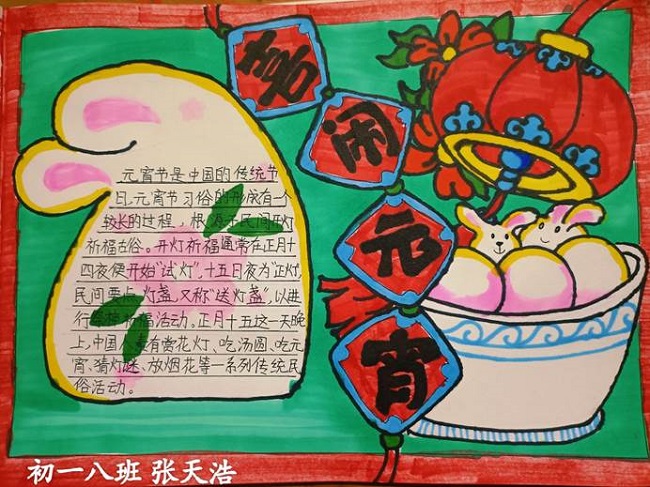 喜闹元宵
元宵节是中国的传统节
日,元宵节习俗的形成有一
较长的过程,根源于民间开灯
祈福古俗。开灯祈福通常在正月十
四夜便开始"试灯",十五日夜为"正灯",
民间要点灯盏,又称"送灯盏",以进
行祈福活动。正月十五这一天晚
上,中国人素有赏花灯、吃汤圆、吃元
宵、猜灯谜、放烟花等一系列传统民
俗活动。
初一八班 张天浩